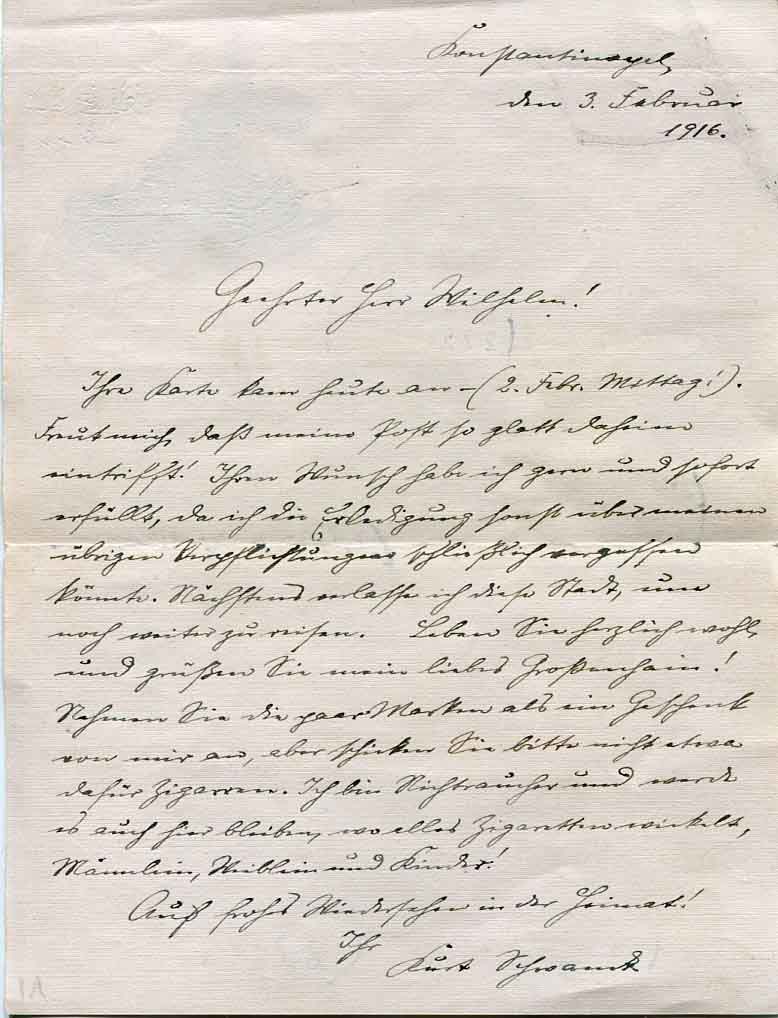 Konstantinopel,
den 3. Februar
1916.
Geehrter Herr Wilhelm!
Ihre Karte kam heute an – (2. Febr. Mittag!).
Freut mich, daß meine Post so glatt daheim
eintrifft! Ihren Wunsch habe ich gern und sofort
erfüllt, da ich die Erledigung sonst über meinen
übrigen Verpflichtungen schließlich vergessen
könnte. Nächstens verlasse ich diese Stadt, um
noch weiter zu reisen. Leben Sie herzlich wohl,
und grüßen Sie mein liebes Großenhain!
Nehmen Sie die paar Marken als ein Geschenk
von mir an, aber schicken Sie bitte nicht etwa
dafür Zigarren. Ich bin Nichtraucher und werde
es auch hier bleiben, wo alles Zigaretten wickelt,
Männlein, Weiblein und Kinder!
Auf frohes Wiedersehen in der Heimat!
Ihr
Kurt Schwanck